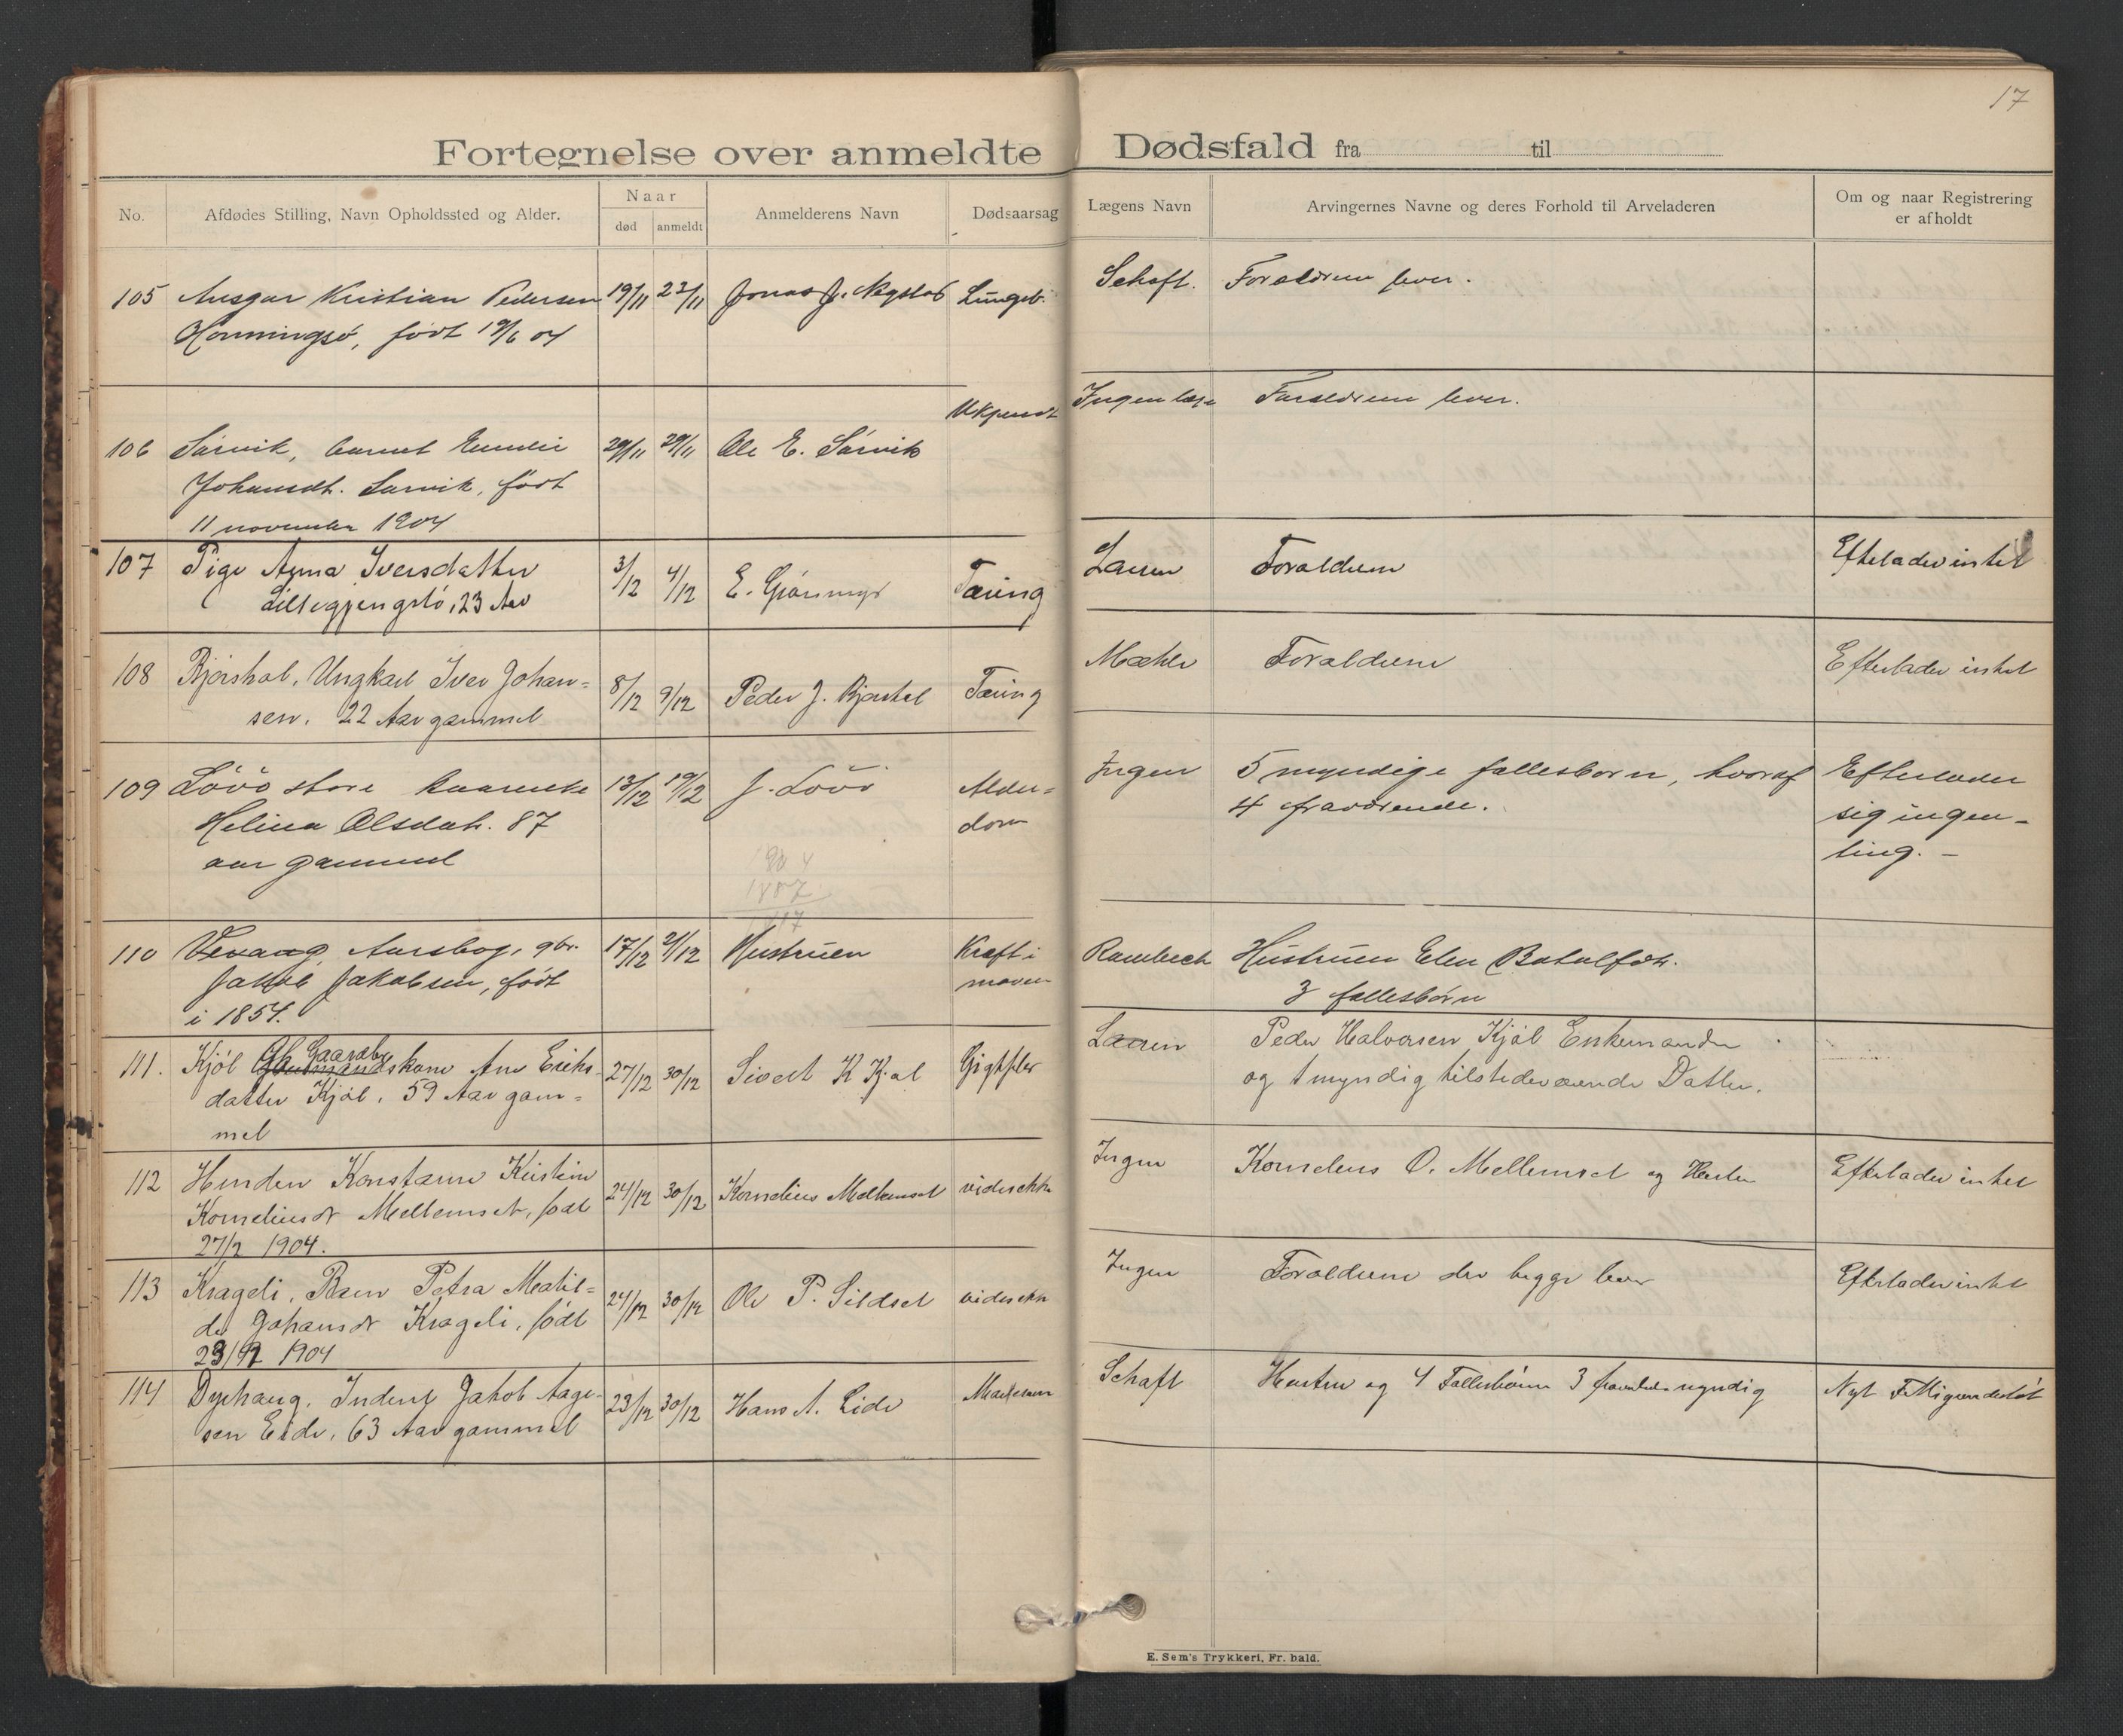 17
Fortegnelse over anmeldte Dødsfald fra til
No.
Afdødes Stilling, Navn Opholdssted og Alder.
Naar
død
anmeldt
Anmelderens Navn
Dødsaarsag
Lægens Navn
Arvingernes Navne og deres Forhold til Arveladeren
Om og naar Registrering
er afholdt
105 Ansgar Kristian Pedersen 19/11 23/11 Jonas J. Lungeb. Schaft. Forældrene lever.
Honningsø, født 19/6 04
Ukjendt Ingen læge Forældrene lever.
106 Sarvik, barnet 29/11 29/11 Ole E. Sarvik
Johansdt. Sarvik, født
11 november 1904
107 Pige Anna Iversdatter 3/12 4/12 E. Tæring Forældrene Efterlader intet
23 Aar
108 Bjørshol, Ungkarl Iver Johan= 8/12 9/12 Peder J. Tæring Mæhle Forældrene Efterlader intet
sen. 22 Aar gammel
109 Løvø store 13/12 19/12 J. Løvø Alder= Ingen 5 myndige fællesbørn, hvoraf Efterlader
Helina Olsdat. 87 dom 4 fraværende. sig ingen-
aar gammel ting. -
1904
110 Vevang, gbr. 17/12 21/12 Hustruen Kræft i Hustruen Elen
Jakob Jakobsen, født maven 3 fællesbørn
i 1854.
111. Kjøl Gaardbr
kone Ane Eriks- 27/12 30/12 Sivert K Kjøl Gigtfeber Peder Halvorsen Kjøl Enkemanden
datter Kjøl, 59 Aar gam= og 1 myndig tilstedeværende Datter.
mel
112 Konstanse Kristine 24/12 30/12 Kornelius Mellemset vides ikke Ingen Kornelius O. Mellemset og Efterlader intet
Korneliusdt Mellemset, født
27/2 1904.
113 Krageli, Barn Petra Matil= 24/12 30/12 Ole P. Sildset vides ikke Ingen Forældrene der begge lever Efterlader intet
de Johansdt Krageli, født
1904
114 Jakob Aage- 23/12 30/12 Hans A. Eide Schaft og 4 Fællesbørn 3 myndig
sen Eide, 63 Aar gammel
E. Sem's Trykkeri, Fr. hald.